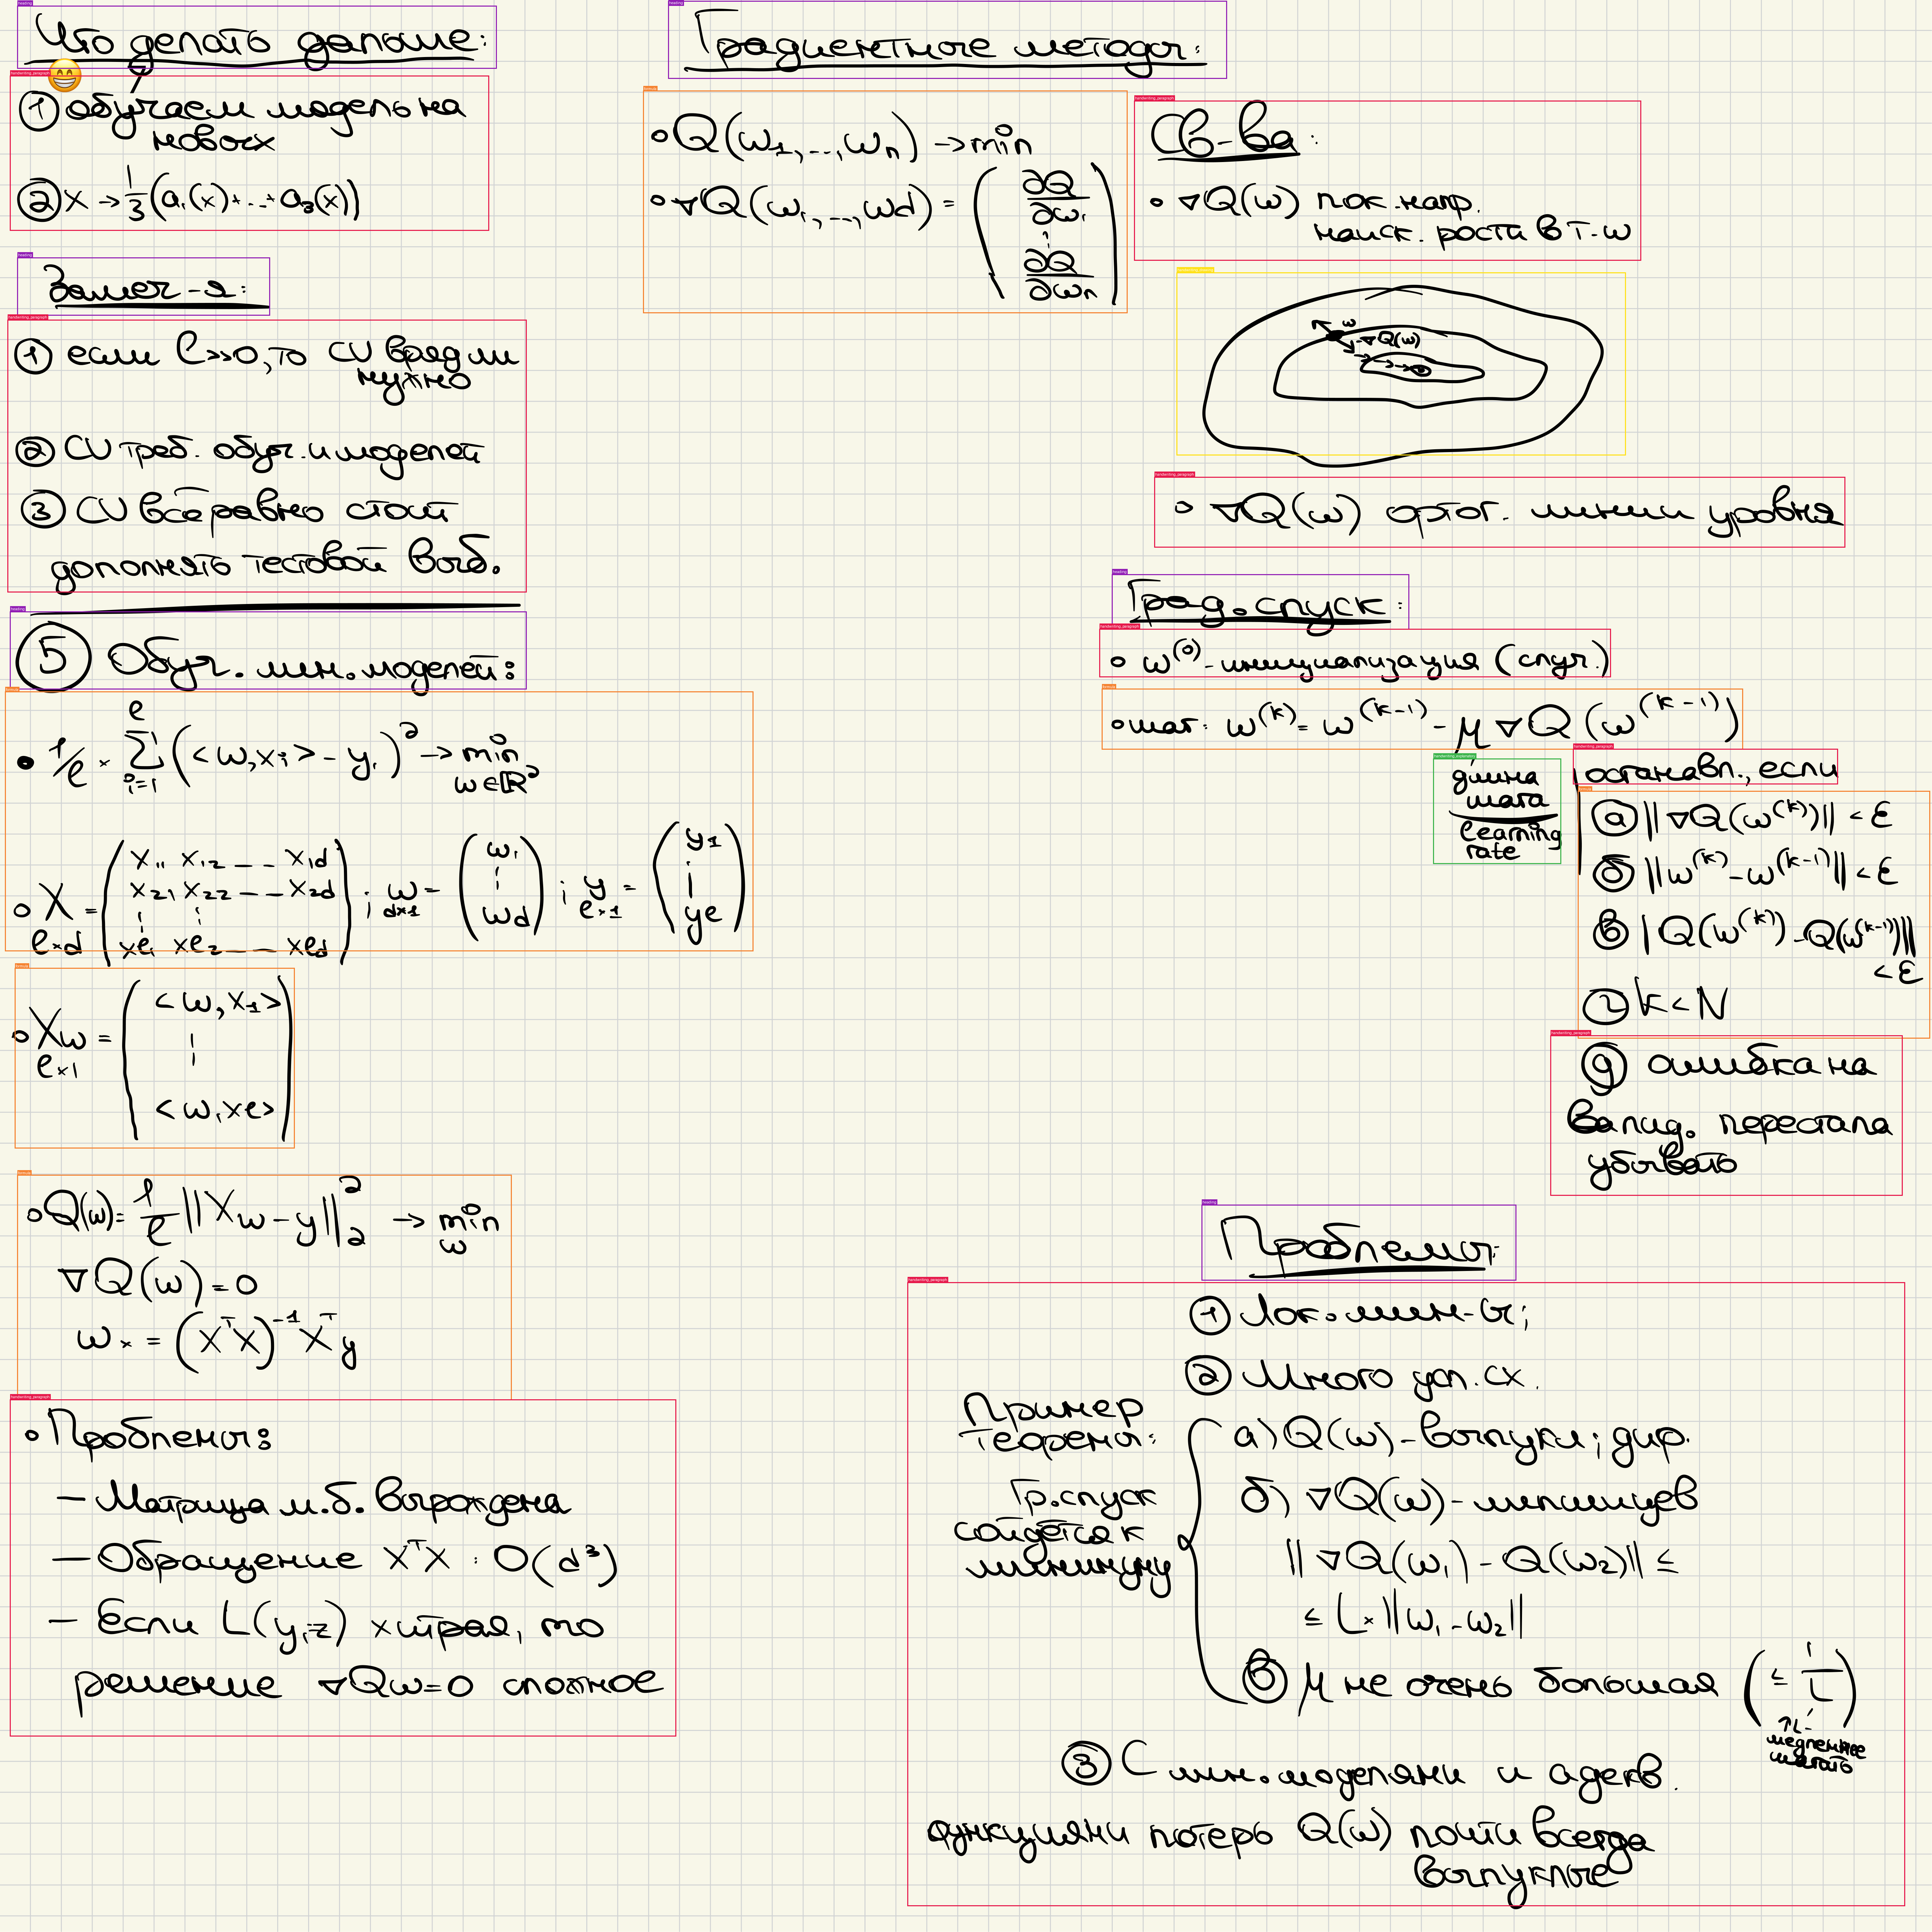 Что делать дальше:
① обучаем модель на
новых
② x → 1/3 (a₁(x)+...+a₃(x))
Замеч-я:
① если l>>0, то CV вряд ли
нужно
② CV треб. обуч. n моделей
③ CV всё равно стоит
дополнять тестовой выб.
⑤ Обуч. лин. моделей:
• 1/l × Σ_{i=1}^{l} (<w,xᵢ> - yᵢ)² → min_{w∈ℝ^d}
∘ X_{l×d} = (x₁₁ x₁₂ -- x₁d; x₂₁ x₂₂ -- x₂d; ⋮ ⋮; xl₁ xl₂ -- xld) ; w_{d×1} = (w₁ ⋮ wd) ; y_{l×1} = (y₁ ⋮ yl)
∘ Xw_{l×1} = (<w,x₁> ⋮ <w,xl>)
∘ Q(w) = 1/l ||Xw - y||₂² → min_w
∇Q(w) = 0
w* = (XᵀX)⁻¹Xᵀy
∘ Проблемы:
— Матрица м.б. вырождена
— Обращение XᵀX : O(d³)
— Если L(y,z) хитрая, то
решение ∇Qw=0 сложное
Градиентные методы:
∘ Q(w₁,...,wₙ) → min
∘ ∇Q(w₁,...,wd) = (∂Q/∂w₁ ⋮ ∂Q/∂wₙ)
Св-ва:
∘ ∇Q(w) пок. напр.
наиск. роста в т-w
w
-∇Q(w)
∘ ∇Q(w) ортог. линии уровня
Град. спуск:
∘ w⁽⁰⁾ - инициализация (случ.)
∘ шаг: w⁽ᵏ⁾ = w⁽ᵏ⁻¹⁾ - μ ∇Q(w⁽ᵏ⁻¹⁾)
длина
шага
learning
rate
останавл., если
ⓐ ||∇Q(w⁽ᵏ⁾)|| < ε
ⓑ ||w⁽ᵏ⁾ - w⁽ᵏ⁻¹⁾|| < ε
ⓥ |Q(w⁽ᵏ⁾) - Q(w⁽ᵏ⁻¹⁾)||
< ε
ⓖ k < N
ⓓ ошибка на
валид. перестала
убывать
Проблемы:
① Лок. мин-ы;
② Много усл. сх.
Пример
теоремы:
Гр. спуск
сойдётся к
минимуму
а) Q(w) - выпукл; диф.
б) ∇Q(w) - липшицев
||∇Q(w₁) - Q(w₂)|| ≤
≤ L × ||w₁ - w₂||
ⓥ μ не очень большая (≤ 1/L)
↑L-
медленнее
шагать
③ С лин. моделями и адекв.
функциями потерь Q(w) почти всегда
выпуклые